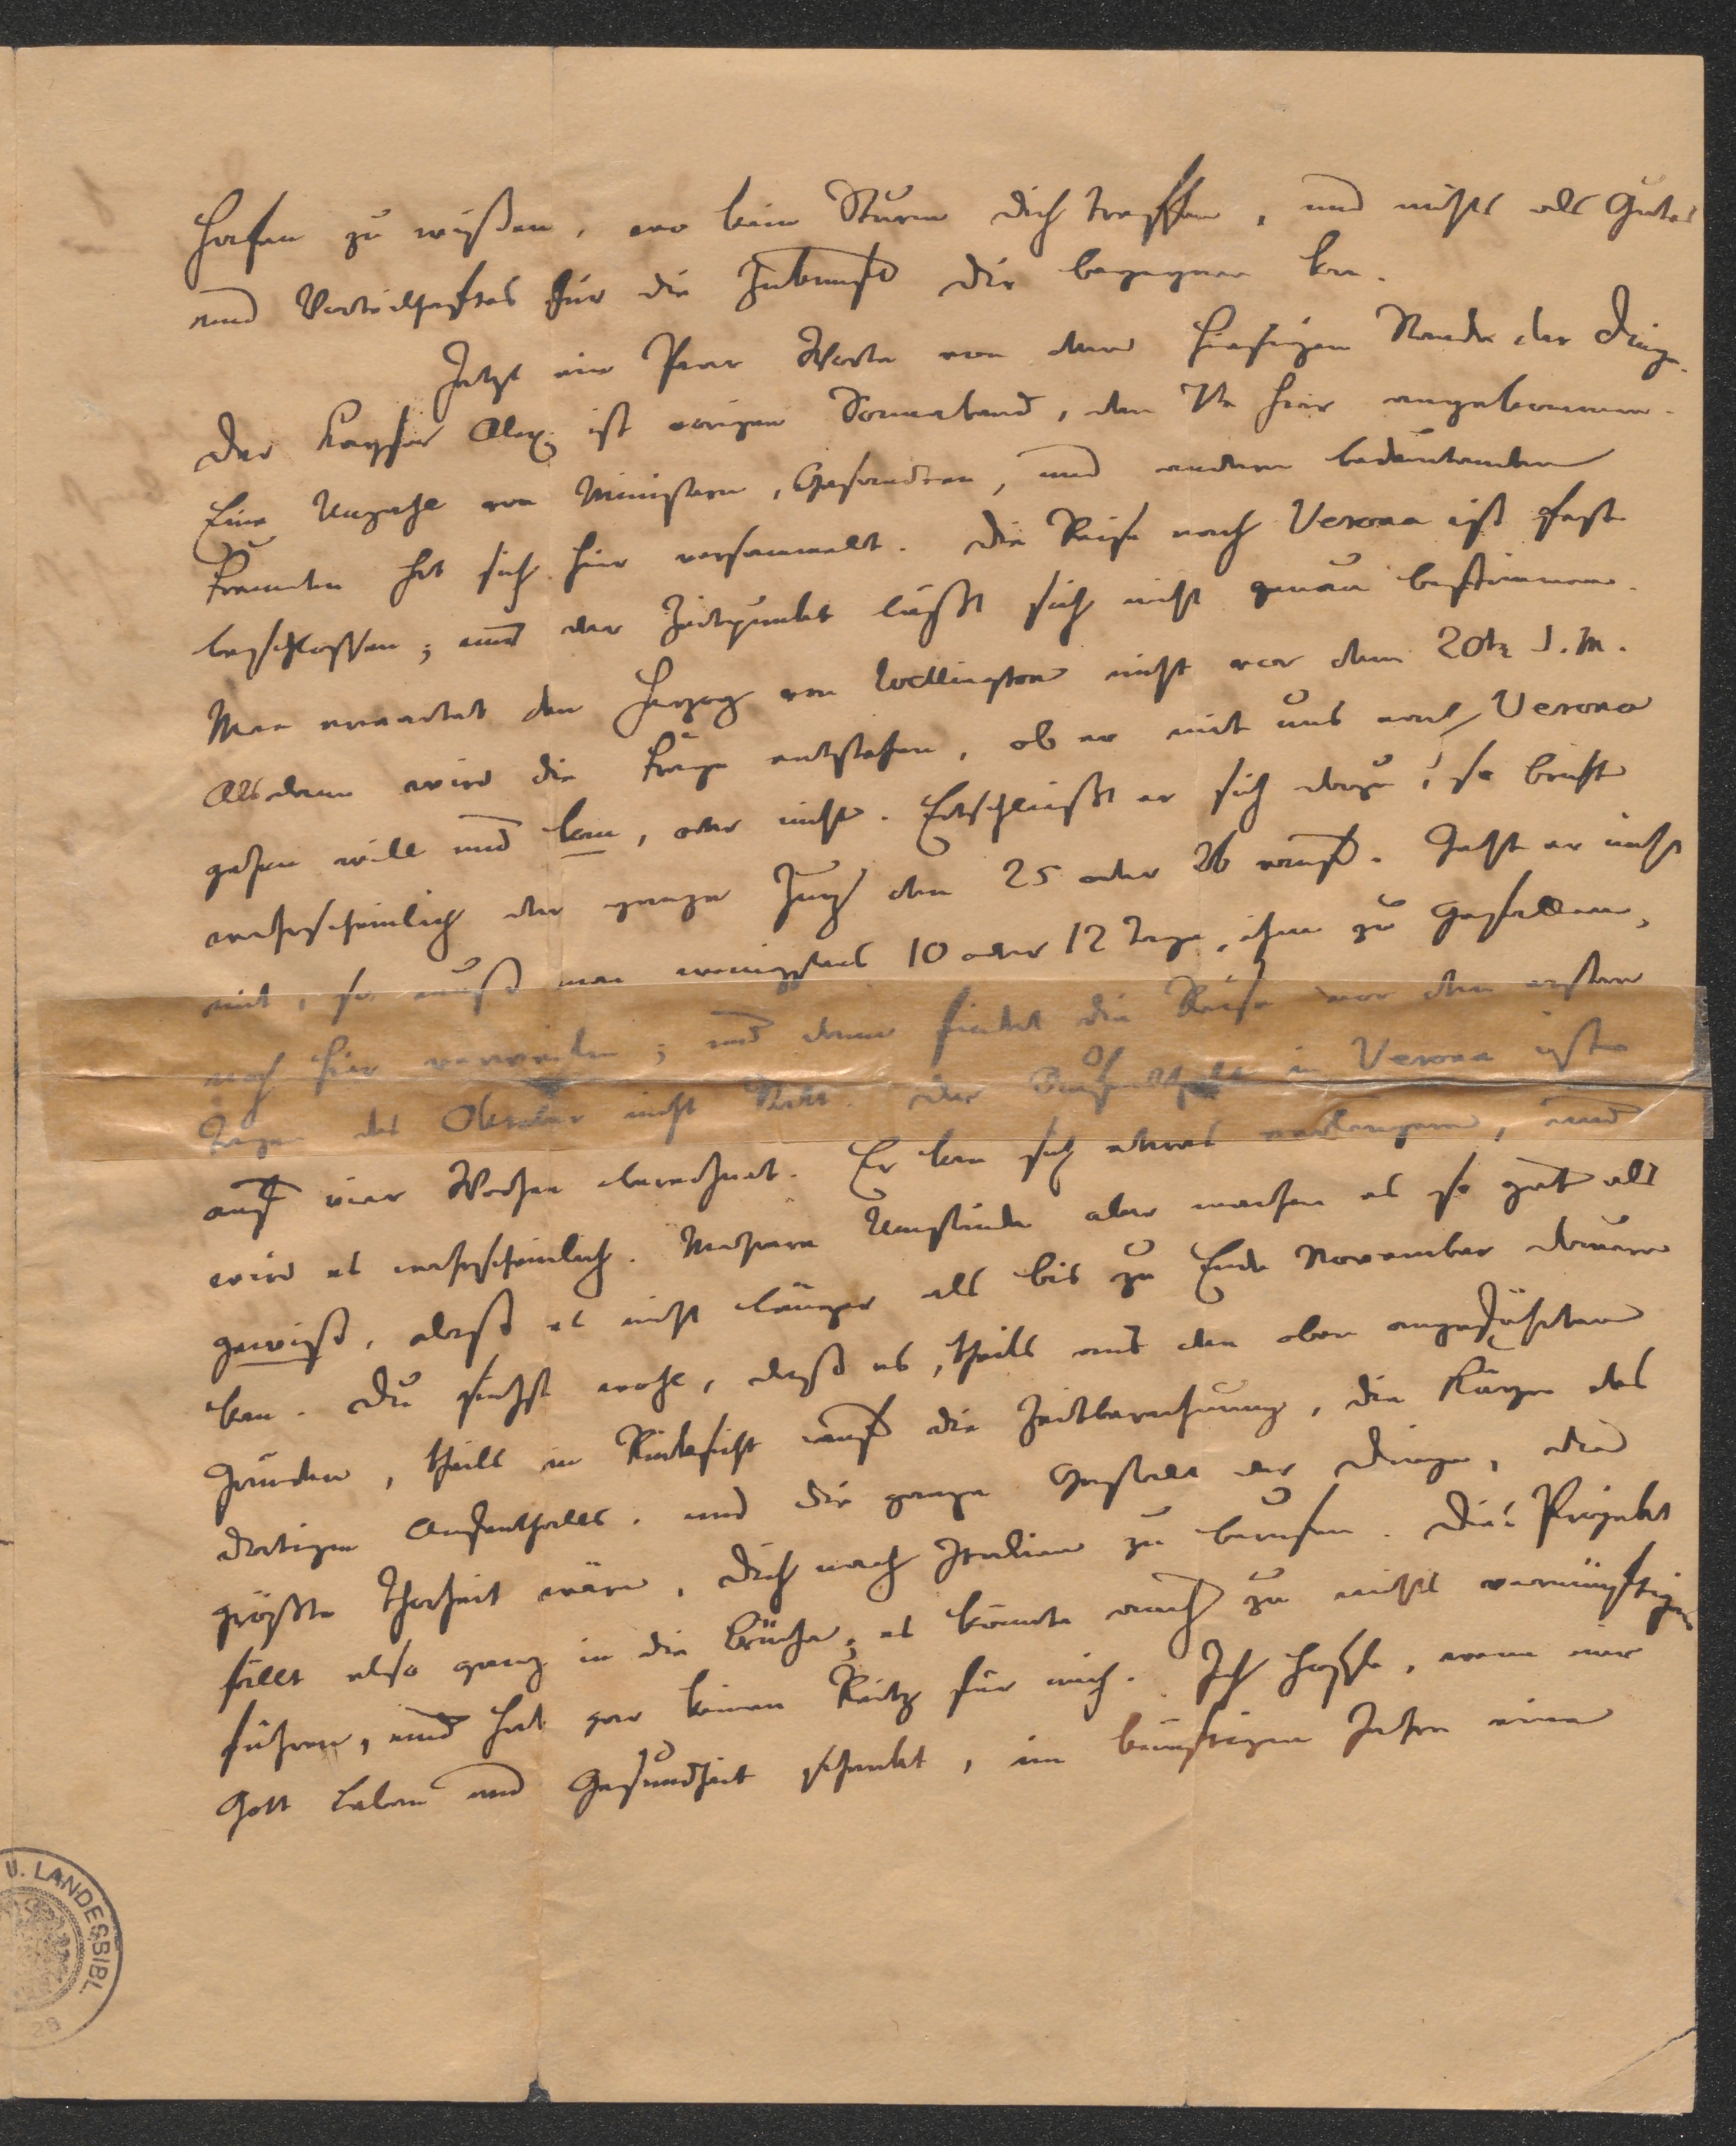 Hafen zu wißen, wo kein Sturm dich treffen, und nichts als Gutes
und Vortheilhaftes für die Zukunft dir begegnen kan.
Jetzt ein Paar Worte von dem hiesigen Stande der Dinge.
Der Kayser Alex. ist vorigen Sonnabend, den 7ten hier angekommen.
Eine Unzahl von Ministern, Gesandten, und andern bedeutenden
Fremden hat sich hier versammelt. Die Reise nach Verona ist fest
beschlossen; nur der Zeitpunkt läßt sich nicht genau bestimmen.
Man erwartet den Herzog von Wellington nicht vor dem 20ten d. M.
Alsdann wird die Frage entstehen, ob er mit uns nach Verona
gehen will und kan, oder nicht. Entschließt er sich dazu, so bricht
wahrscheinlich der ganze Zug den 25 oder 26 auf. Geht er nicht
mit, so muß man wenigstens 10 oder 12 Tage, ihm zu Gefallen,
noch hier verweilen; und dann findet die Reise vor den ersten
Tagen des Oktober nicht Statt. Der Aufenthalt in Verona ist
auf vier Wochen berechnet. Er kan sich etwas verlängern, und
wird es wahrscheinlich. Mehrere Umstände aber machen es so gut als
gewiß, daß es nicht länger als bis zu Ende November dauern
kan. Du siehst wohl, daß es, theils aus den oben angeführten
Gründen, theils in Rücksicht auf die Zeitberechnung, die Kürze des
dortigen Aufenthalts, und die ganze Gestalt der Dinge, die
größte Thorheit wäre, Dich nach Italien zu berufen. Dies Projekt
fällt also ganz in die Brüche; es könnte auch zu nichts vernünftigem
führen, und hat gar keinen Reitz für mich. Ich hoffe, wenn mir
Gott Leben und Gesundheit schenkt, im künftigen Jahre eine
U. LANDESBIBL.
29